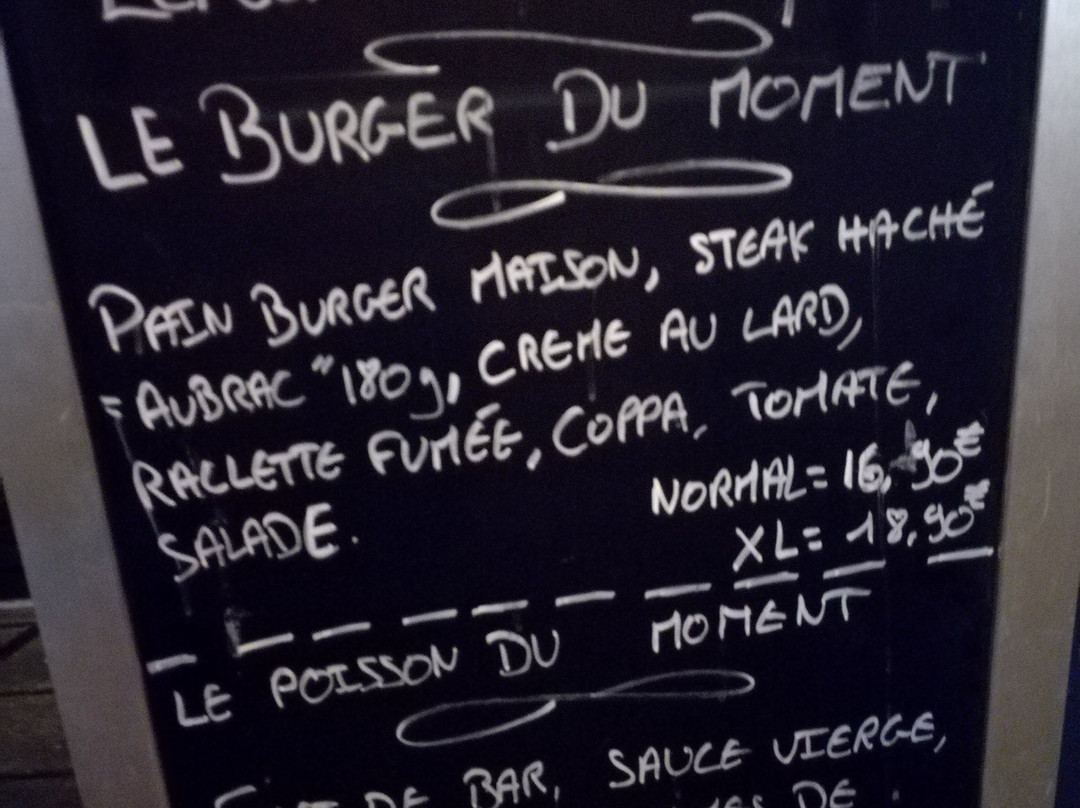 LE BURGER DU MOMENT
PAIN BURGER MAISON, STEAK HACHÉ
"AUBRAC" 180g, CREME AU LARD,
RACLETTE FUMÉE, COPPA, TOMATE,
SALADE.
NORMAL = 16,90€
XL = 18,90€
LE POISSON DU MOMENT
DE BAR, SAUCE VIERGE,
DE